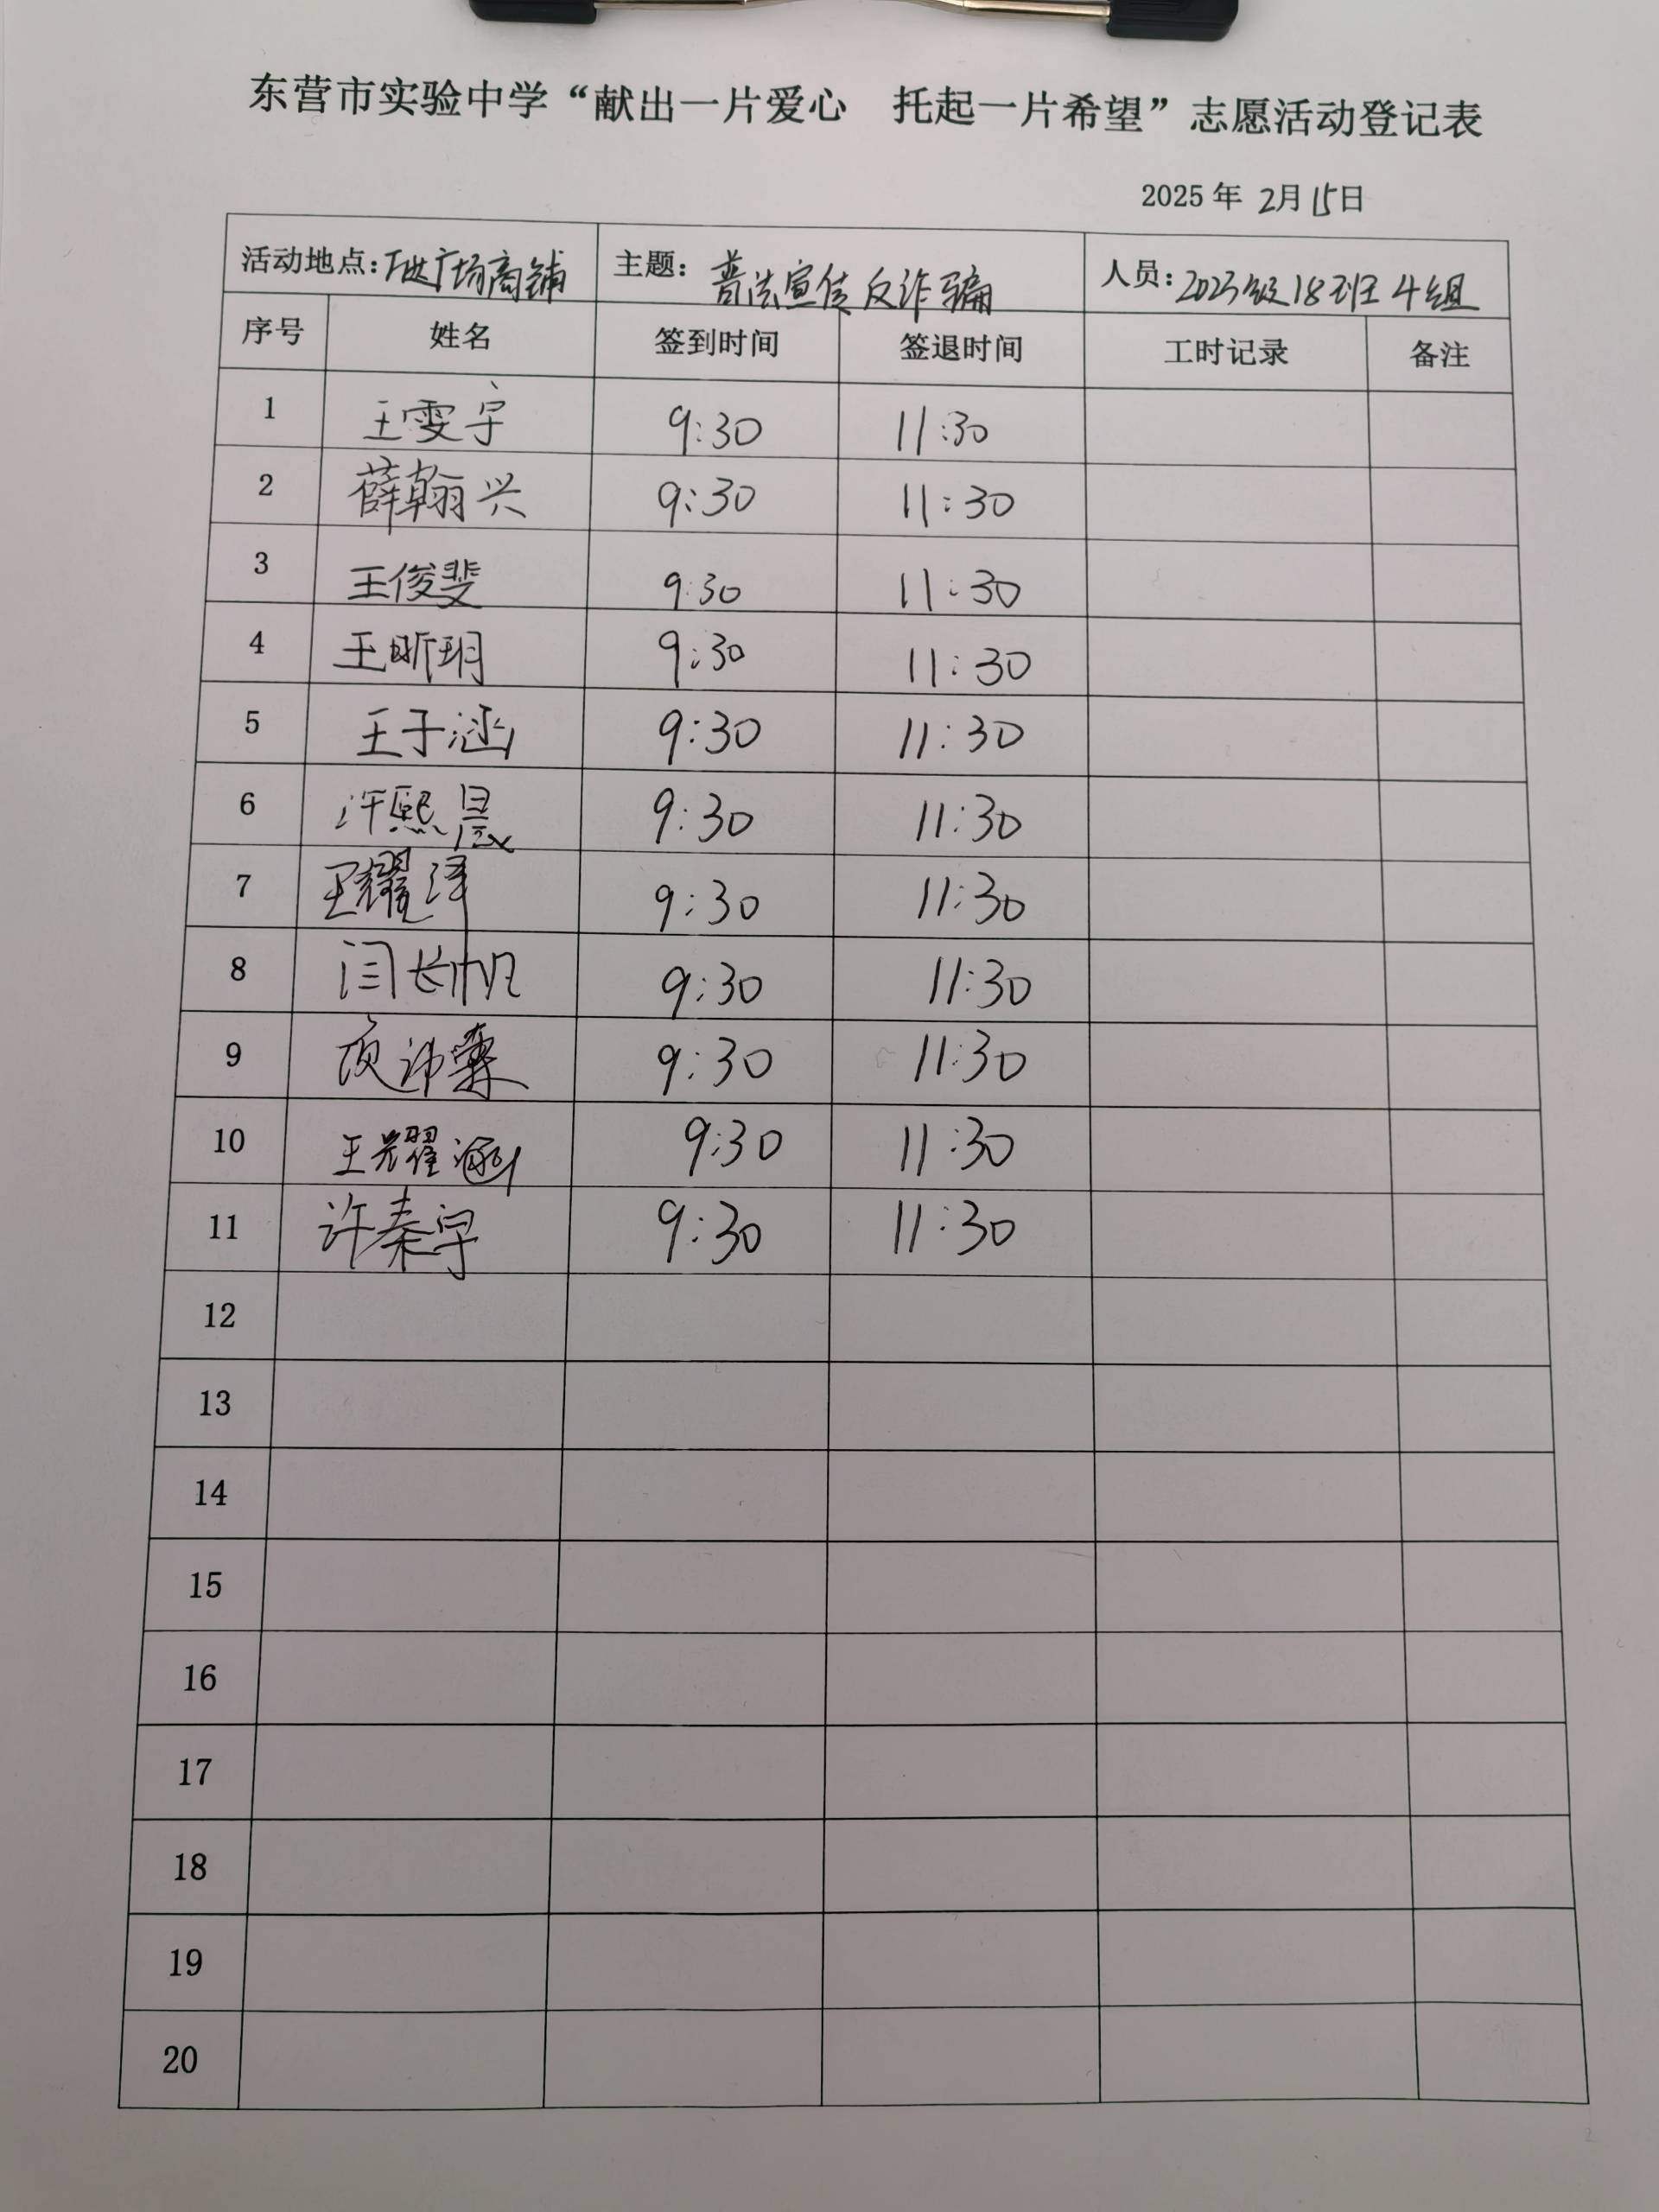 东营市实验中学“献出一片爱心 托起一片希望”志愿活动登记表
2025 年 2月15日
活动地点:万达广场商铺 主题: 普法宣传 反诈骗 人员: 2023级18班4组
序号 姓名 签到时间 签退时间 工时记录 备注
1 王雯宇 9:30 11:30
2 薛翰兴 9:30 11:30
3 王俊斐 9:30 11:30
4 王昕玥 9:30 11:30
5 王子涵 9:30 11:30
6 许熙晨 9:30 11:30
7 王耀泽 9:30 11:30
8 闫长帆 9:30 11:30
9 9:30 11:30
10 王耀涵 9:30 11:30
11 许秦宇 9:30 11:30
12
13
14
15
16
17
18
19
20